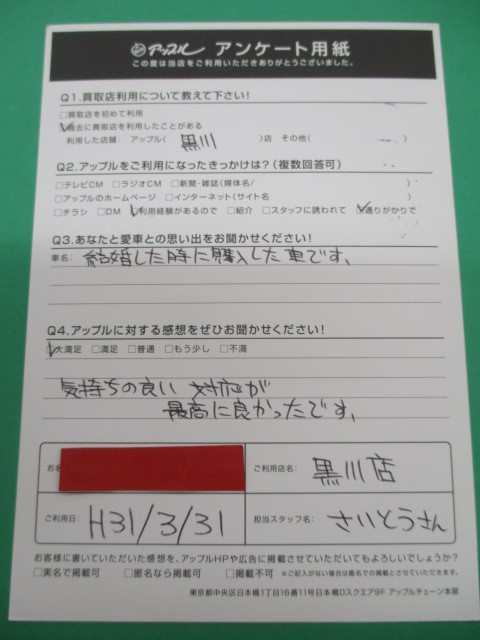 アップル アンケート用紙
この度は当店をご利用いただきありがとうございました。
Q1.買取店利用について教えて下さい!
□買取店を初めて利用
☑過去に買取店を利用したことがある
利用した店舗: アップル( 黒川 )店 その他( )
Q2.アップルをご利用になったきっかけは?(複数回答可)
□テレビCM □ラジオCM □新聞・雑誌(媒体名/ )
□アップルのホームページ □インターネット(サイト名 )
□チラシ □DM ☑利用経験があるので □紹介 □スタッフに誘われて ☑通りがかりで
Q3.あなたと愛車との思い出をお聞かせください!
車名: 結婚した時に購入した車です、
Q4.アップルに対する感想をぜひお聞かせください!
☑大満足 □満足 □普通 □もう少し □不満
気持ちの良い 対応が
最高に良かったです、
お名
ご利用店名: 黒川店
ご利用日: H31/3/31
担当スタッフ名: さいとうさん
お客様に書いていただいた感想を、アップルHPや広告に掲載させていただいてもよろしいでしょうか?
□実名で掲載可 □匿名なら掲載可 □掲載不可 ※ご記入がない場合は匿名での掲載とさせていただきます。
東京都中央区日本橋1丁目16番11号日本橋Dスクエア9F アップルチェーン本部